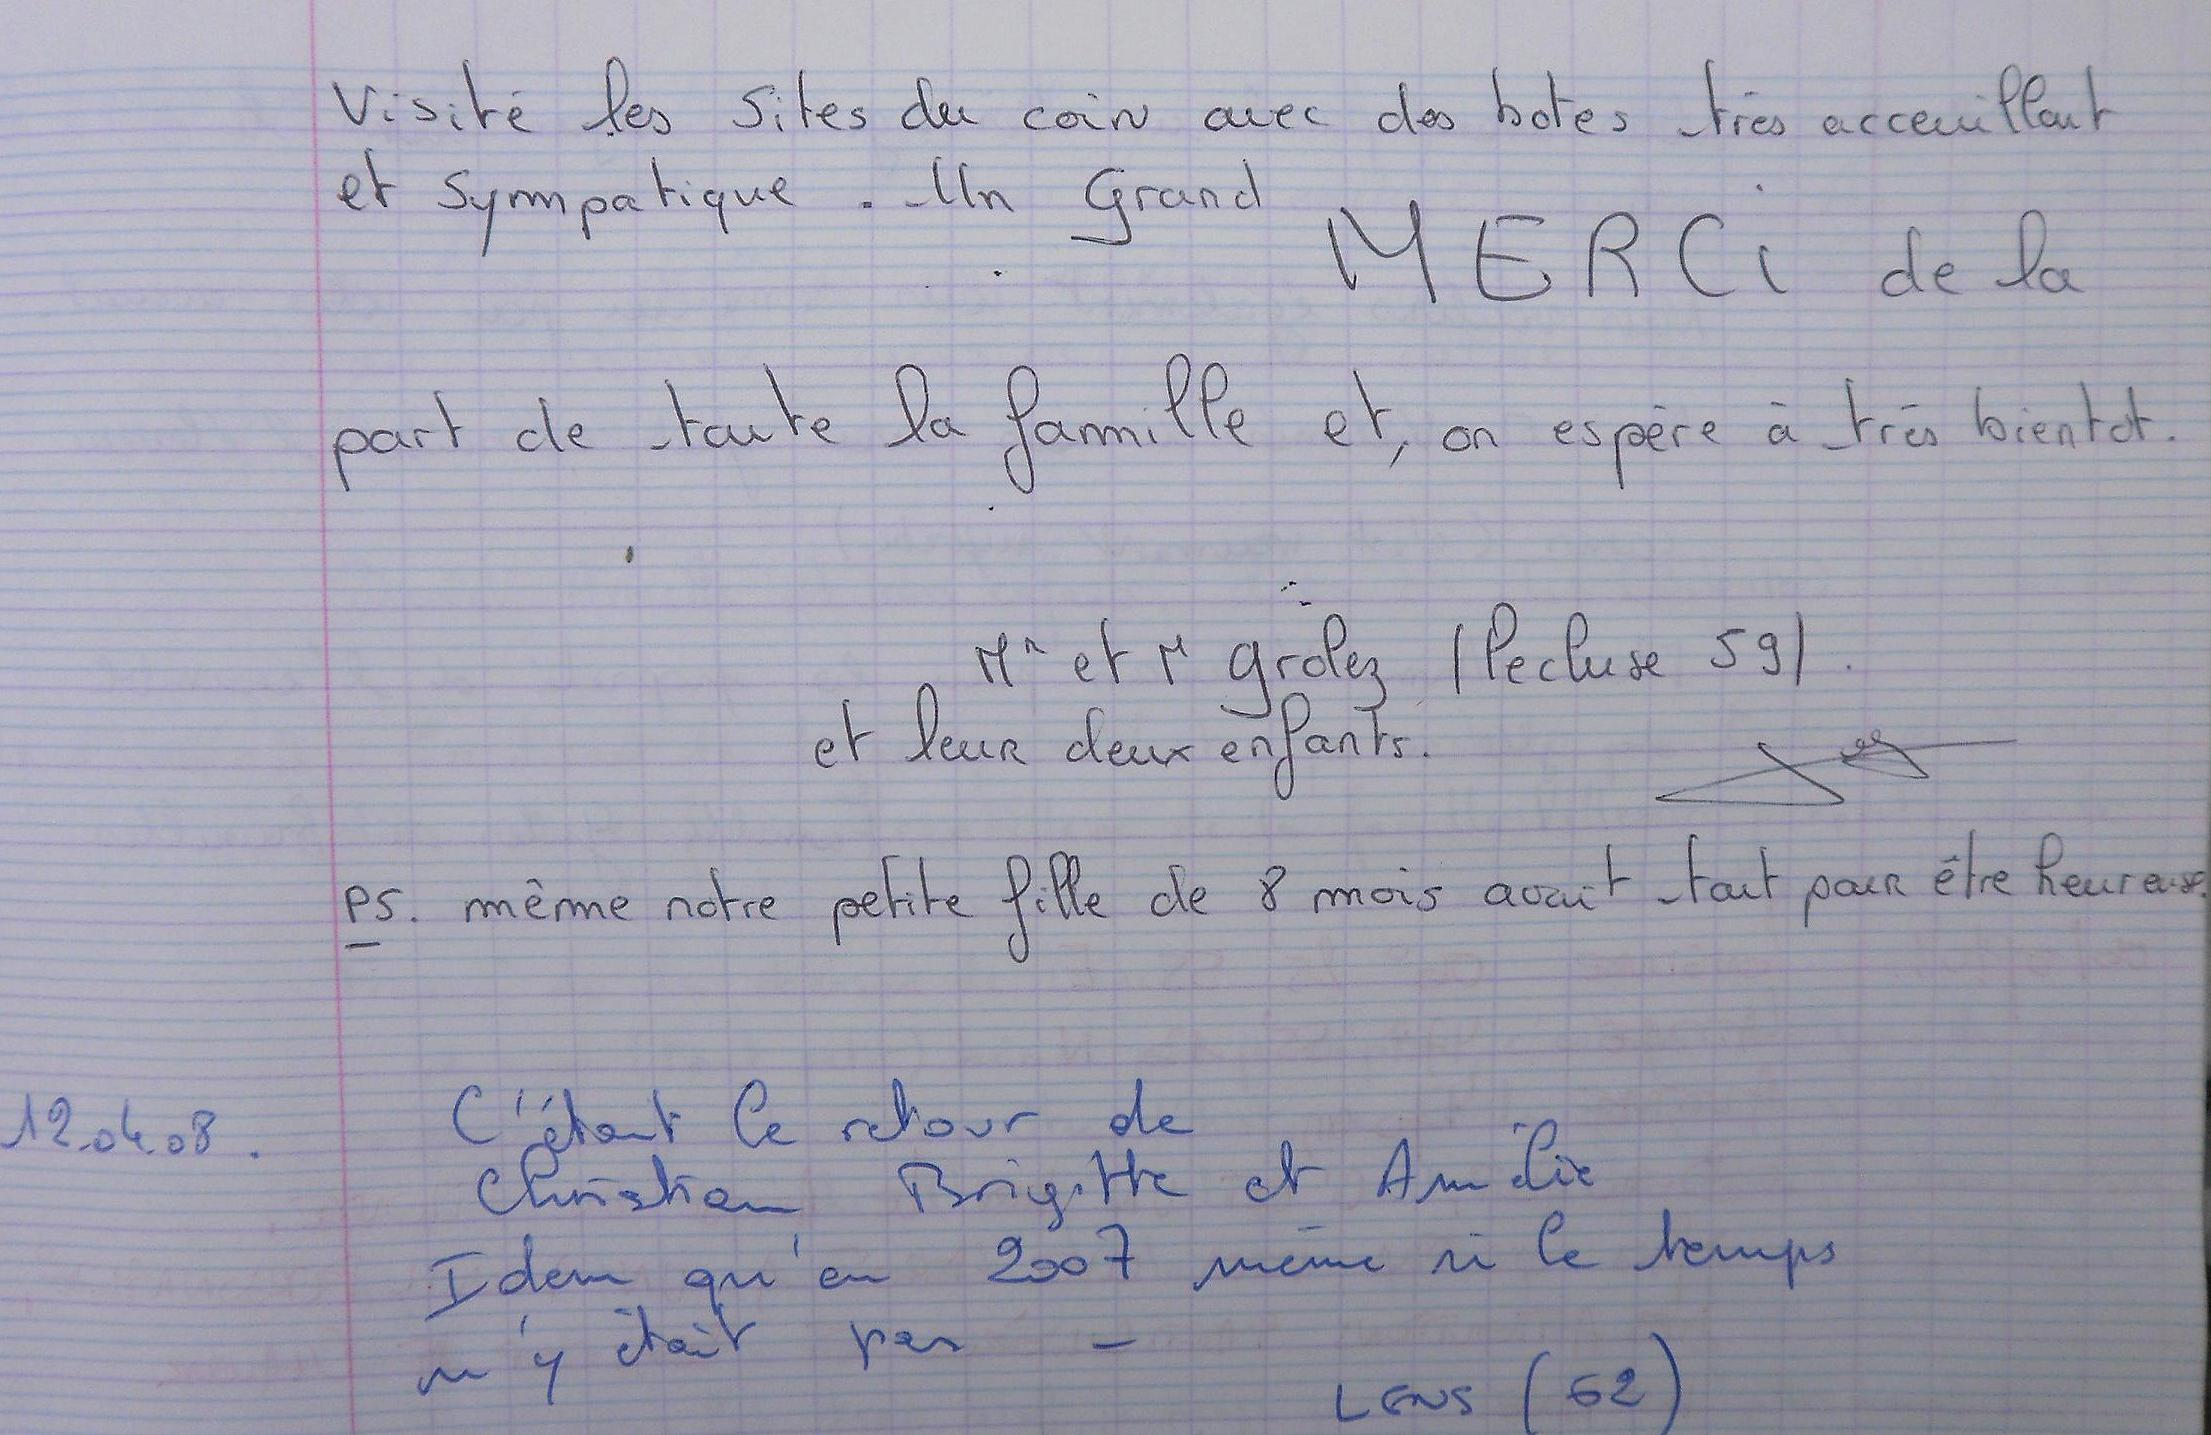 Visité les sites du coin avec des hotes très acceuillant
et sympatique. Un Grand MERCi de la
part de toute la famille et, on espère à très bientot.
Mr et M grolez (lecluse 59).
et leur deux enfants.
PS. même notre petite fille de 8 mois avait tout pour être heureuse
12.04.08. C'était le retour de
Christian Brigitte et Amélie
Idem qu'en 2007 même si le temps
n'y était pas -
LENS (62)